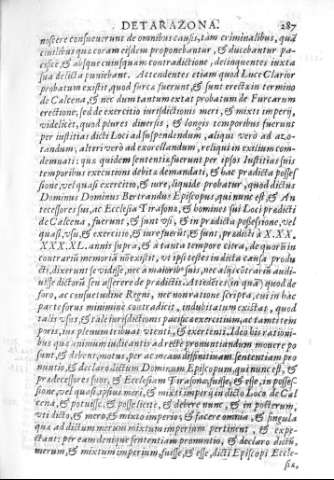 DE TARAZONA. 287
nostere consueuerunt de omnibus causis, tam criminalibus, quã
ciuilibus quæ coram eisdem proponebantur, & ducebantur pa-
cificè, & absque cuiusquam contradictione, delinquentes iuxta
sua delicta puniebant. Attendentes etiam quod Luce Clarior
probatum existit, quod furca fuerunt, & sunt erecta in termino
de Calcena, & nec dum tantum extat probatum de Furcarum
erectione, sed de exercitio iurisdictionis meri, & mixti imperij,
videlicet, quod plures diuersis, & longis temporibus fuerunt
per iustitias dicti Loci ad suspendendum, aliqui verò ad azo-
tandum, alteri verò ad exorellandum, reliqui in exilium con-
demnati: quæ quidem sententiæ fuerunt per ipsos Iustitias suis
temporibus executoni debita demandati, & hac prædicta posses-
sione, vel quasi exercitio, & iure, liquide probatur, quod dictus
Dominus Dominus Bertrandus Episcopus, qui nunc est, & An
tecessores sui, ac Ecclesia Tirasonæ, & homines sui Loci prædicti
de Calcena, fuerunt, & sunt vsi, & in prædicta possessione, vel
quasi, vsu, & exercitio, & iure fuerũt, & sunt, prædicti à XXX,
XXXXL. annis supra, & à tanto tempore citra, de quorũ in
contrariũ memoria nõ existit, vt ipsi testes in dicta causa produ
cti, dixerunt se vidisse, nec à maioribus suis, nec alijs cõtrariũ audi-
uisse dictorũ seu asserere de prædictis. Attẽtẽs (in quã) quod de
foro, ac consuetudine Regni, nec non ratione scripta, cui in hac
parte forus minimè contradicit, indubitatum existat, quod
talis vsus, & tale iurisdictionis pacifica exercitium, ac tantis tem
poris, ius plenum tribuat vtenti, & exertenti. Ideo his rationi-
bus quæ animum iudicantis ad rectè pronuntiandum mouere pos
sunt, & debent, motus, per ac meam diffinitiuam sententiam pro
nuntio, & declaro dictum Dominum Episcopum, qui nunc est, &
prædecessores suos, & Ecclesiam Tirasonæ, fuisse, & esse, in posses-
sione, vel quasi, ipsius meri, & mixti imperij in dicto Loco de Cal
cena, & potuisse, & possessisse, & debere nunc, & in posterum,
vti dicto, & mero, & mixto imperio, & facere omnia, & singula
quæ ad dictum merum mixtum imperium pertinent, & expe-
ctant: per eamdemque sententiam promuntio, & declaro dictũ,
merum, & mixtum imperium, fuisse, & esse, dicti Episcopi Eccle-
siæ,